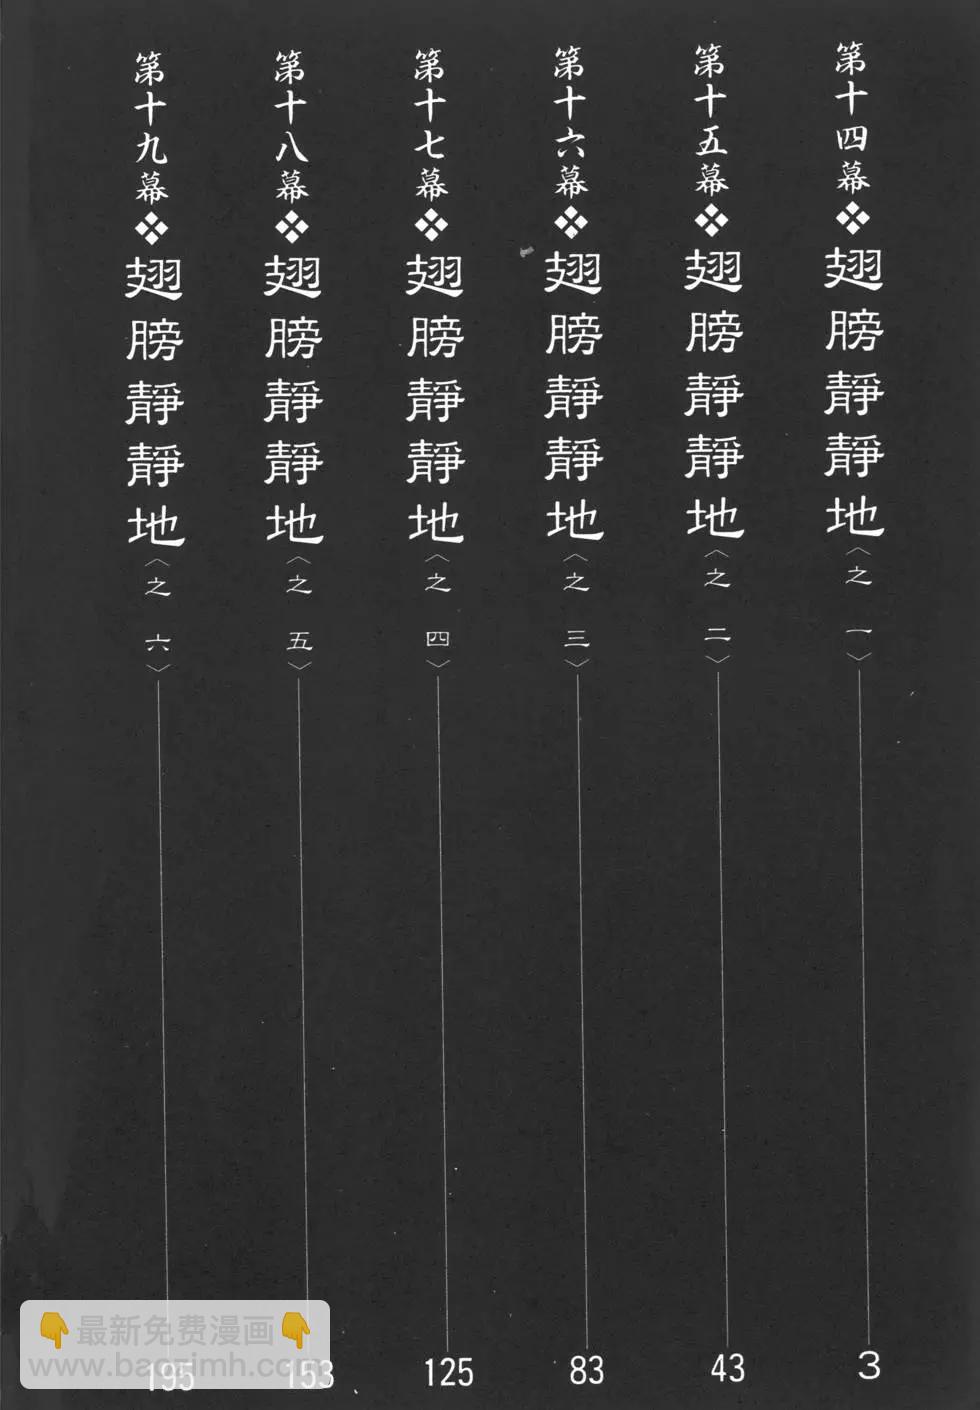 第十四幕❖翅膀靜靜地〈之一〉3
第十五幕❖翅膀靜靜地〈之二〉43
第十六幕❖翅膀靜靜地〈之三〉83
第十七幕❖翅膀靜靜地〈之四〉125
第十八幕❖翅膀靜靜地〈之五〉153
第十九幕❖翅膀靜靜地〈之六〉195
👇最新免费漫画👇